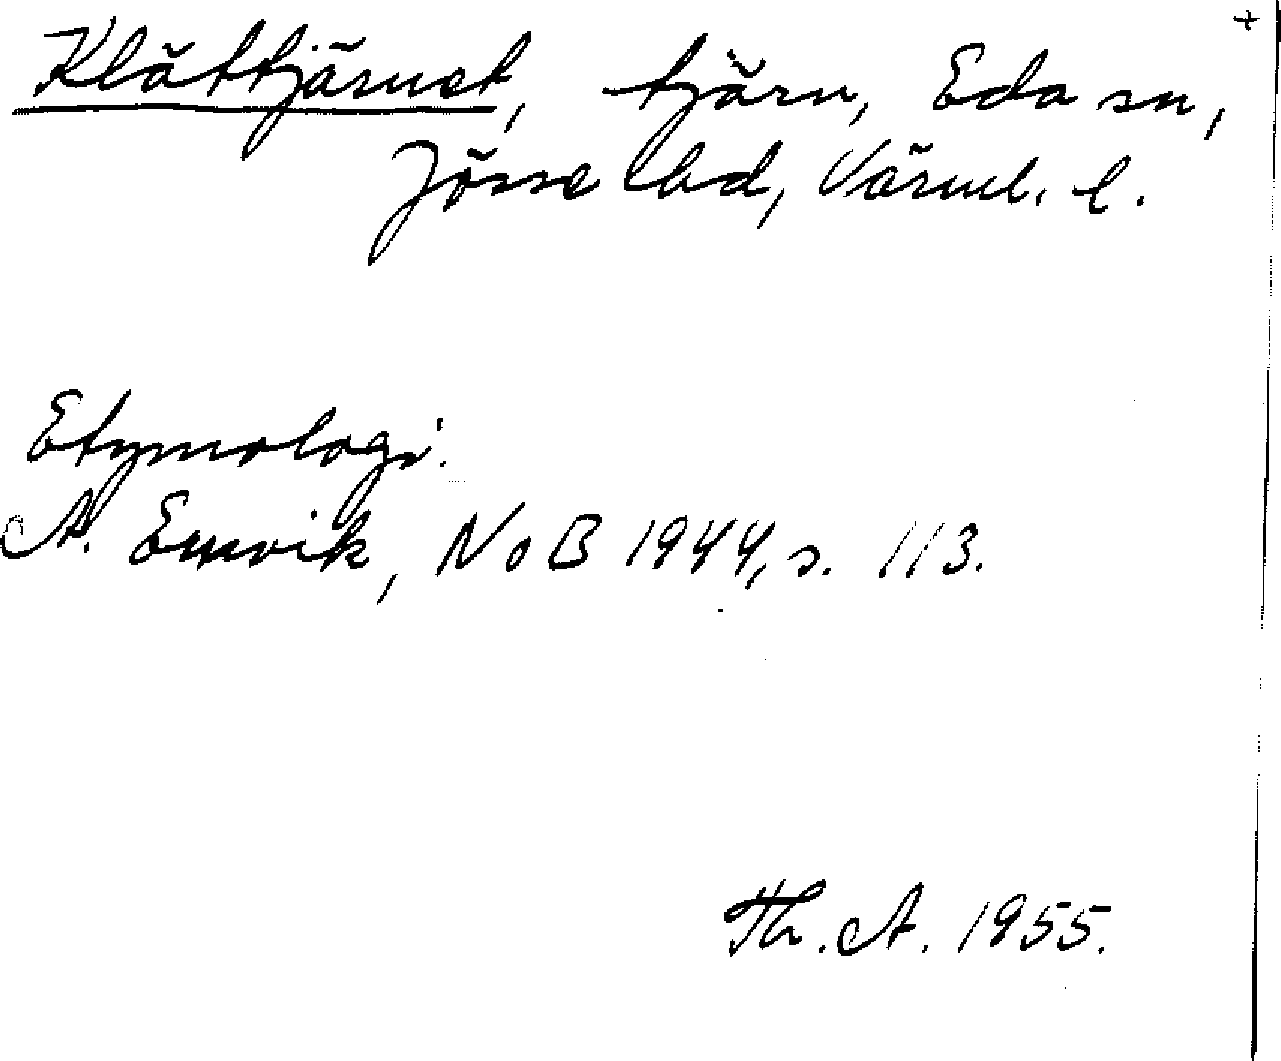 +
Klättjärnet, tjärn, Eda sn,
Jösse hd, Värml. l.
Etymologi.
A. Ernvik, NoB 1944, s. 113.
Th. A. 1955.